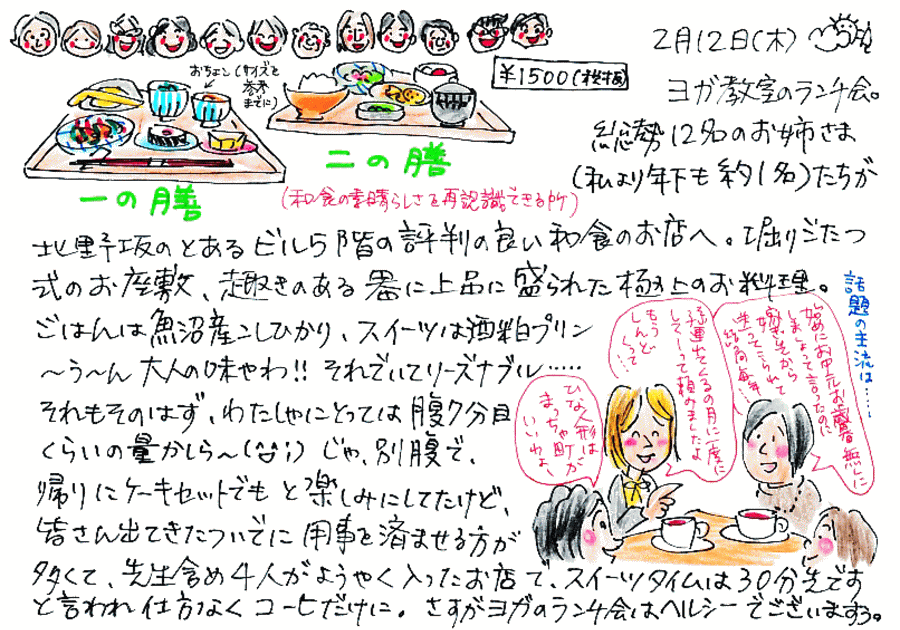 2月12日(木)
おちょこ(サイズの参考までに)
¥1500(税抜)
ヨガ教室のランチ会。
総勢12名のお姉さま
(私より年下も約1名)たちが
一の膳
二の膳
(和食の素晴らしさを再認識できる所)
北野坂のとあるビル5階の評判の良い和食のお店へ。堀りごたつ
式のお座敷、趣きのある器に上品に盛られた極上のお料理。
ごはんは魚沼産こしひかり、スイーツは酒粕プリン
〜う〜ん大人の味やわ!!それでいてリーズナブル……
それもそのはず、わたしゃにとっては腹7分目
くらいの量かしら〜(^^;)じゃ、別腹で、
帰りにケーキセットでもと楽しみにしてたけど、
皆さん出てきたついでに用事を済ませる方が
多くて、先生含め4人がようやく入ったお店で、スイーツタイムは30分先です
と言われ仕方なくコーヒだけに。さすがヨガのランチ会はヘルシーでございますう。
話題の主流は……
始めにお中元お歳暮無しに
しましょって言ったのに
嫁の
送ってこられて
結局毎年…
孫連れてくるの月に一度に
してーって頼めましたよ
もうしんどくって…
ひな人形は
まっちゃ町が
いいわよ